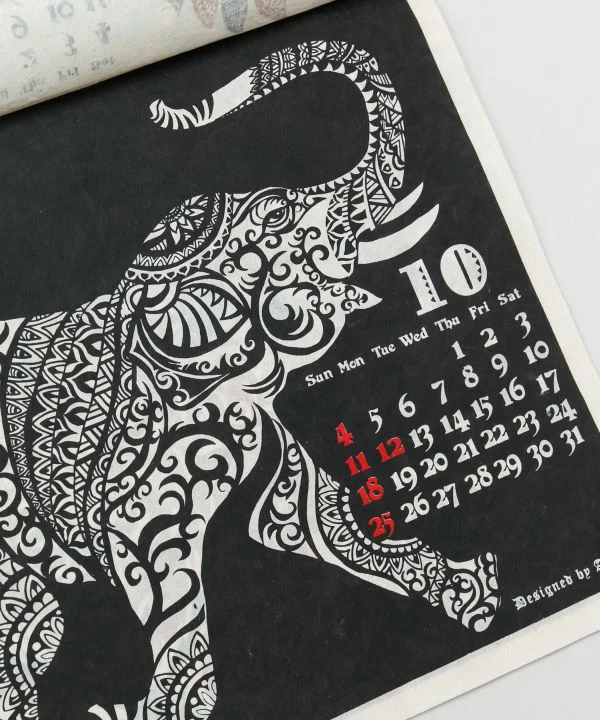 10
Sun Mon Tue Wed Thu Fri Sat
1 2 3
4 5 6 7 8 9 10
11 12 13 14 15 16 17
18 19 20 21 22 23 24
25 26 27 28 29 30 31
Designed by